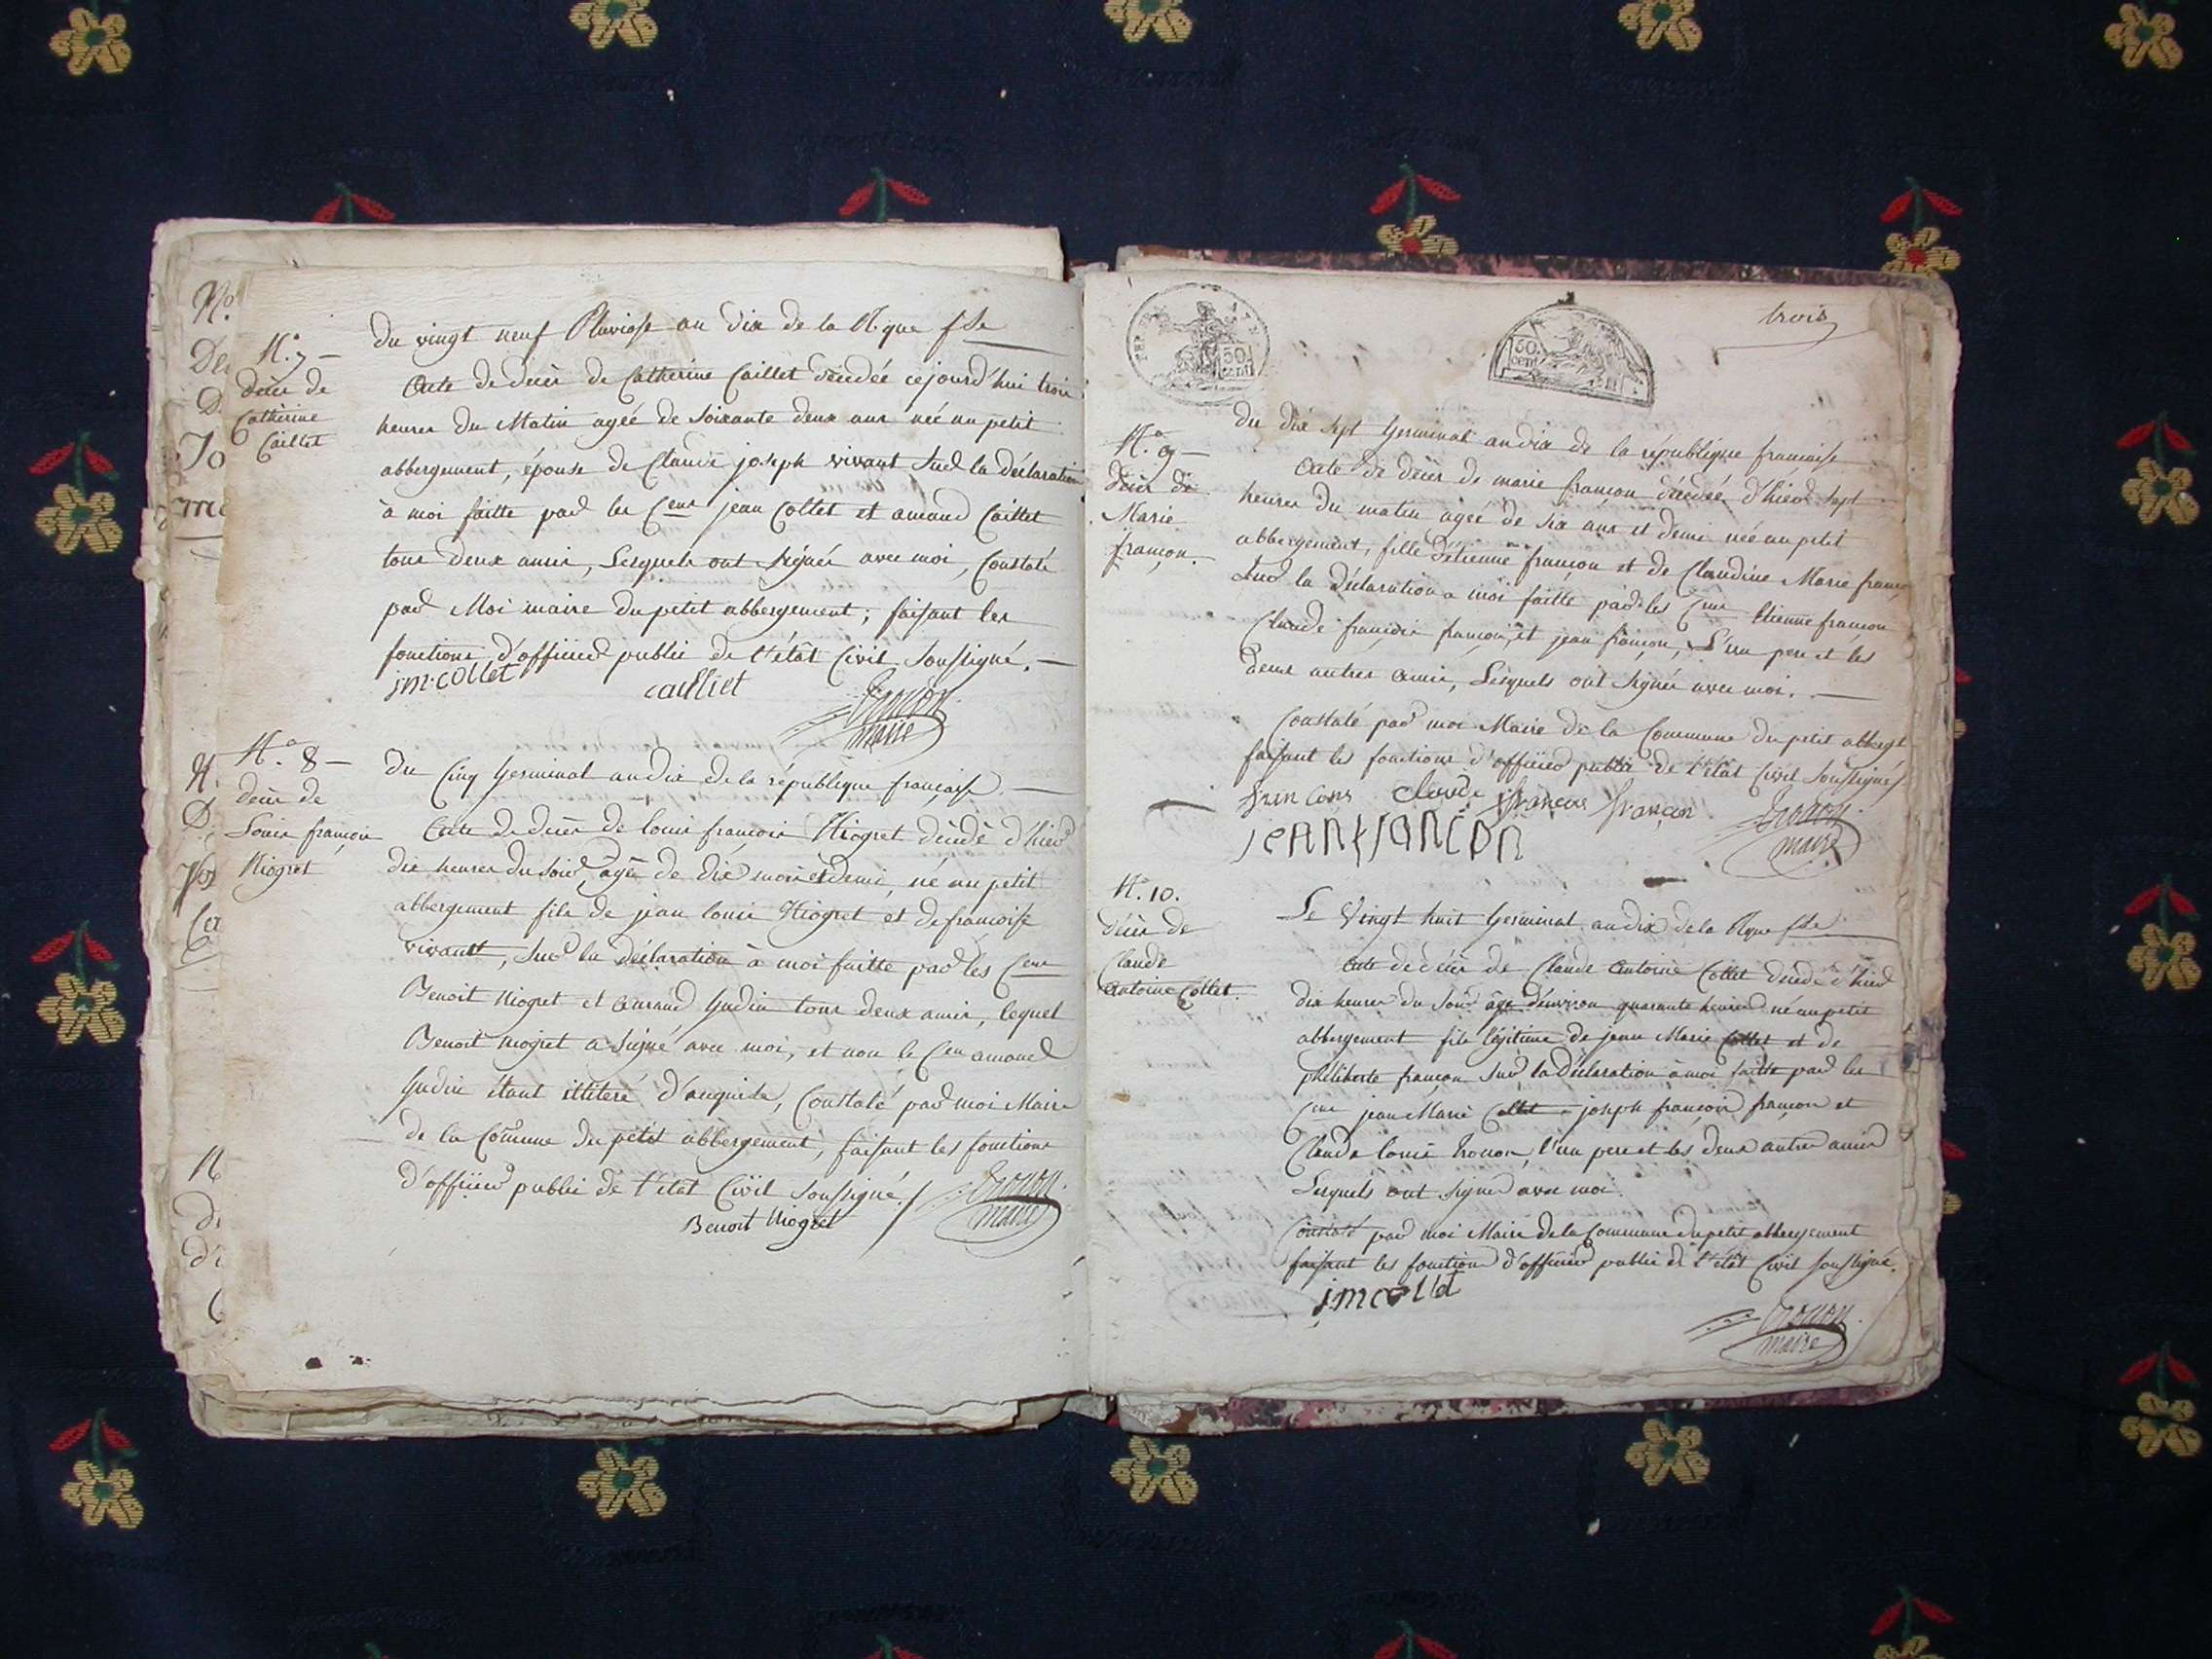 N.° 7 —
décès de
Catherine
Caillet
Du vingt neuf Pluviose an dix de la Rque fse
Acte de décès de Catherine Caillet décédée cejourd'hui trois
heures du Matin agée de soixante deux ans née au petit
abbergement, épouse de Claude joseph vivant sur la déclaration
à moi faitte par les Cens jean Collet et amand Caillet
tous deux amis, Lesquels ont signés avec moi, Constaté
par Moi maire du petit abbergement; faisant les
fonctions d'officier public de l'état Civil soussigné. —
jm.collet
cailliet
trocon
maire
N.° 8 —
décès de
Louis françois
Niogret
Du Cinq Germinal an dix de la république française. —
Acte de décès de louis françois Niogret décédé d'hier
dix heures du soir, agé de dix mois et demi, né au petit
abbergement fils de jean louis Niogret et de françoise
vivant, sur la déclaration à moi faitte par les Cens
Benoit Niogret et amand Gudin tous deux amis, lequel
Benoit niogret a signé avec moi, et non le Cen amand
Gudin étant illiteré d'enquis, Constaté par moi Maire
de la Comune du petit abbergement, faisant les fonctions
d'officier public de l'état Civil soussigné./
Benoit Niogret
trocon
maire
trois
50
cent.
50
cent.
N.° 9 —
décès de
Marie
françon.
du dix sept Germinal an dix de la république française
Acte de décès de marie françon décédée d'hier sept
heures du matin agée de six ans et demi née au petit
abbergement, fille d'étienne françon et de Claudine Marie franço
sur la déclaration a moi faitte par les Cens Etienne françon
Claude françois françon, et jean françon, L'un pere et les
deux autres amis, Lesquels ont signés avec moi. —
Constaté par moi Maire de la Commune du petit abbergt
faisant les fonctions d'officier public de l'état Civil soussigné
Claude françois françon
jean françon
trocon
maire
N.° 10.
décès de
Claude
antoine Collet.
Le Vingt huit Germinal an dix de la Rque fse
Acte de décès de Claude antoine Collet décédé d'hier
dix heures du soir agé d'environ quarante heures né au petit
abbergement fils légitime de jean Marie Collet et de
philiberte françon sur la déclaration à moi faitte par les
Cens jean Marie Collet joseph françois françon et
Claude louis trocon, l'un pere et les deux autres amis
Lesquels ont signé avec moi.
Constaté par moi Maire de la Commune du petit abbergement
faisant les fonctions d'officier public de l'état Civil soussigné.
jmcollet
trocon
maire